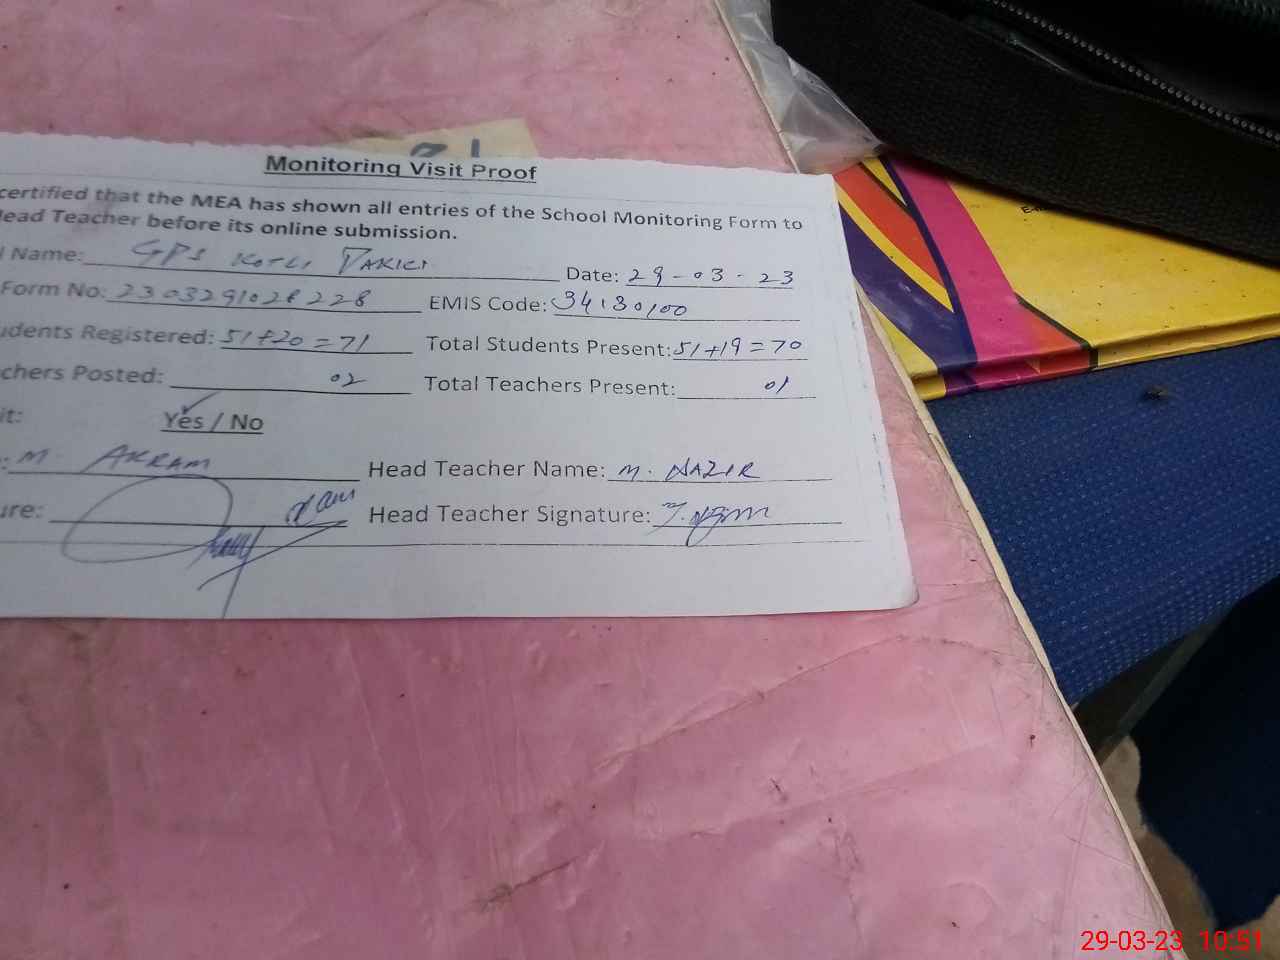 Monitoring Visit Proof
certified that the MEA has shown all entries of the School Monitoring Form to
Head Teacher before its online submission.
Name: GPS KOTLI Date: 29-03-23
Form No: 230329102 228 EMIS Code: 34130100
udents Registered: 51+20=71 Total Students Present: 51+19=70
chers Posted: 02 Total Teachers Present: 01
it: Yes / No
: M. AKRAM Head Teacher Name: M. NAZIR
ure: Head Teacher Signature:
29-03-23 10:51